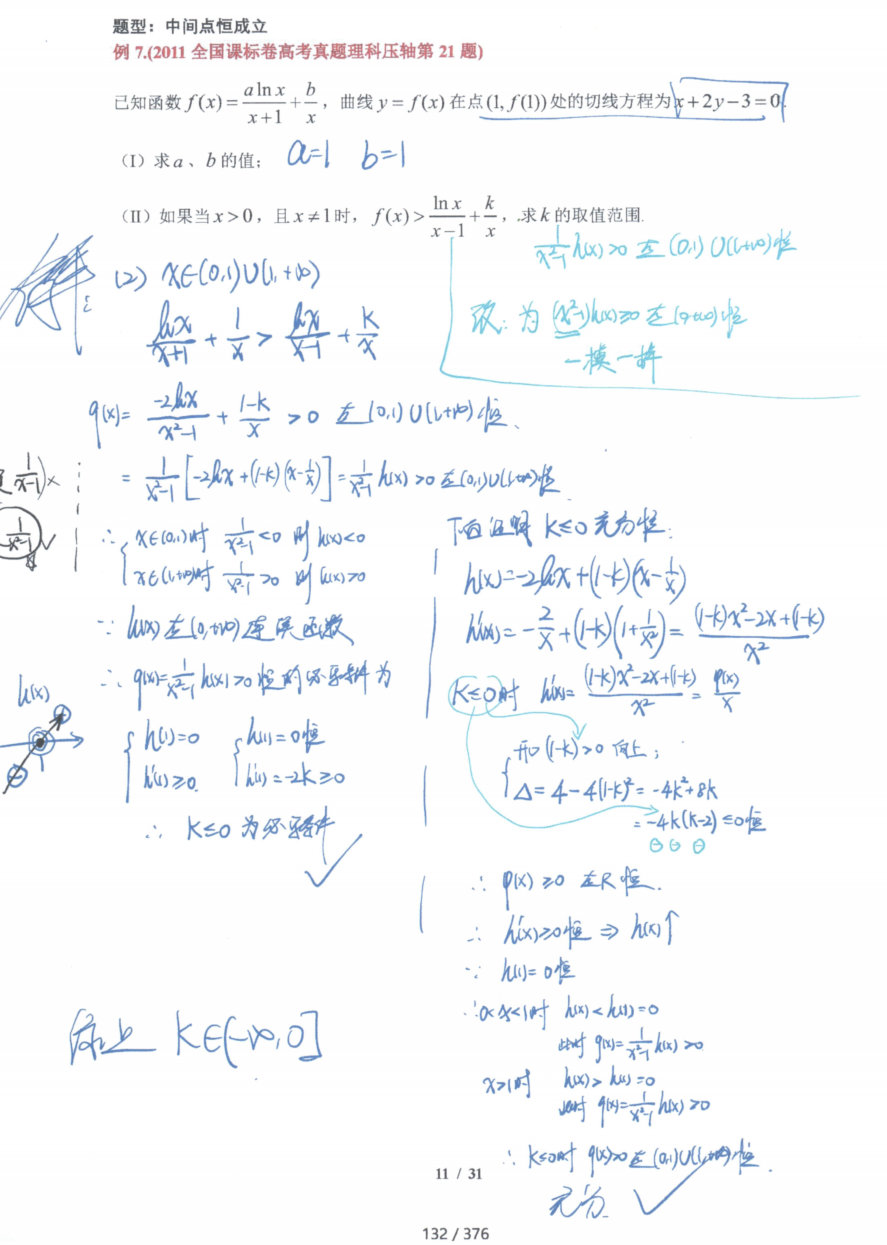 题型：中间点恒成立
例 7.(2011 全国课标卷高考真题理科压轴第 21 题)
已知函数 f(x) = a ln x / (x+1) + b/x，曲线 y = f(x) 在点 (1, f(1)) 处的切线方程为 x+2y−3=0.
（I）求 a、b 的值；a=1 b=1
（II）如果当 x>0，且 x≠1 时，f(x) > ln x / (x−1) + k/x，.求 k 的取值范围.
1/(x²-1) h(x)>0 在(0,1)∪(1,+∞)恒
改：为 (x²-1)h(x)≥0 在(0,+∞)恒
一模一样
(2) x∈(0,1)∪(1,+∞)
lnx/(x+1) + 1/x > lnx/(x-1) + k/x
g(x)= -2lnx/(x²-1) + (1-k)/x >0 在(0,1)∪(1,+∞)恒、
= 1/(x²-1) [-2lnx+(1-k)(x-1/x)] = 1/(x²-1) h(x) >0 在(0,1)∪(1,+∞)恒
1/(x-1) ×
1/(x²-1) √
∴ { x∈(0,1)时 1/(x²-1)<0 则 h(x)<0
x∈(1,+∞)时 1/(x²-1)>0 则 h(x)>0
∵ h(x)在(0,+∞)连续函数
∴ g(x)=1/(x²-1) h(x)>0恒的必要条件为
h(x)
1
{ h(1)=0 { h(1)=0恒
h'(1)≥0. h'(1)=-2k≥0
∴ k≤0 为必要条件
下面证明 k≤0 充分性：
h(x)=-2lnx+(1-k)(x-1/x)
h'(x)= -2/x+(1-k)(1+1/x²)= ((1-k)x²-2x+(1-k))/x²
k≤0时 h'(x)= ((1-k)x²-2x+(1-k))/x² = φ(x)/x
{ 开口(1-k)>0 向上；
Δ=4-4(1-k)²=-4k²+8k
=-4k(k-2)≤0恒
∴ φ(x)≥0 在R恒.
∴ h'(x)≥0恒 ⇒ h(x)↑
∵ h(1)=0恒
∴0<x<1时 h(x)<h(1)=0
此时 g(x)=1/(x²-1) h(x)>0
x>1时 h(x)>h(1)=0
此时 g(x)=1/(x²-1) h(x)>0
∴ k≤0时 g(x)>0在(0,1)∪(1,+∞)恒.
充分 √
综上 k∈(-∞,0]
11 / 31
132 / 376